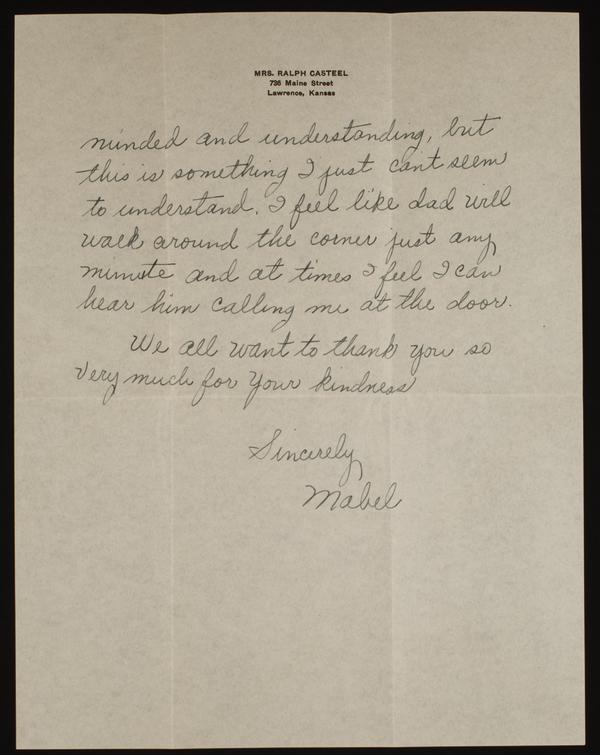 MRS. RALPH CASTEEL
736 Maine Street
Lawrence, Kansas
minded and understanding, but
this is something I just can't seem
to understand. I feel like dad will
walk around the corner just any
minute and at times I feel I can
hear him calling me at the door.
We all want to thank you so
very much for your kindness
Sincerely,
Mabel